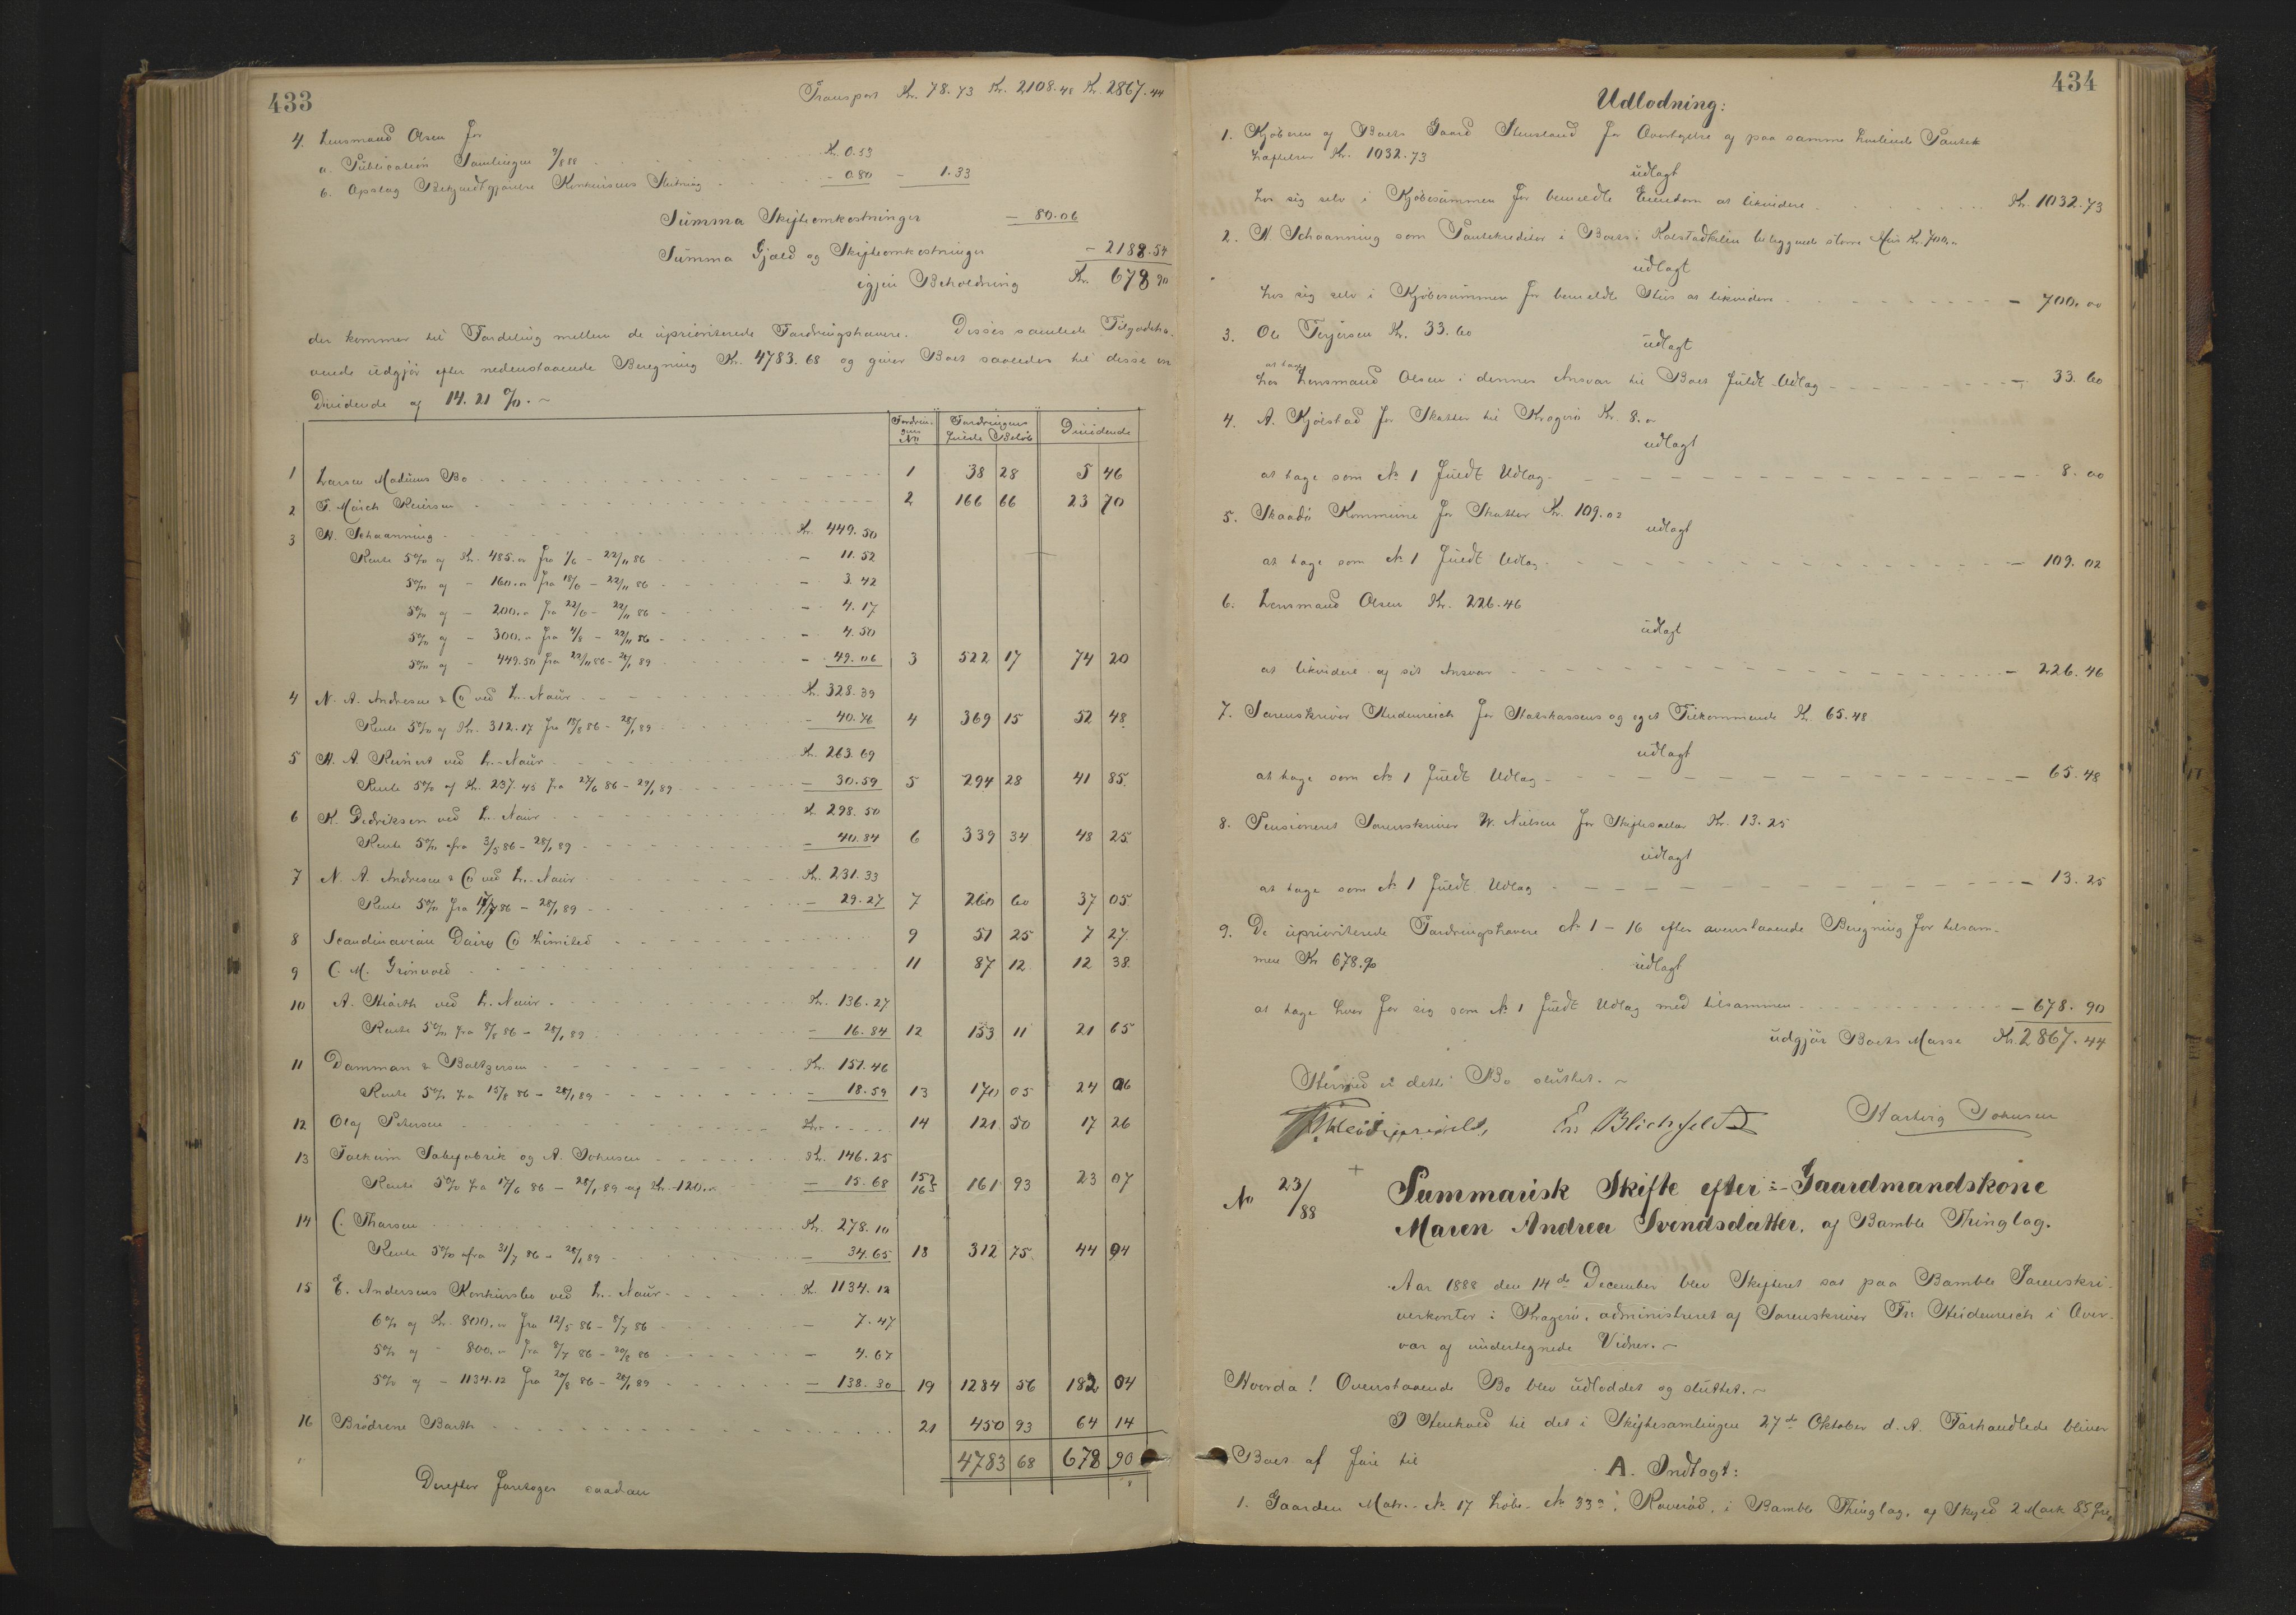 433
Transport Kr. 78.73 Kr. 2108.48 Kr. 2867.44
4. Lensmand Olsen for
a. Publication Samlingen 9/8 88 Kr. 0.53
b. Opslag Bekjendtgjørelse Konkursens Slutning - 0.80 - 1.33
Summa Skifteomkostninger - 80.06
Summa Gjæld og Skifteomkostninger - 2188.54
igjen Beholdning Kr. 678 90
der kommer til Fordeling mellem de uprioriterede Fordringshavere. Disses samlede Tilgodeha-
vende udgjør efter nedenstaaende Beregning Kr. 4783.68 og giver Boet saaledes til disse en
Dividende af 14.21 %. -
Fordrin- gens No Fordringens fulde Beløb Dividende
1 Larsen Madsens Bo 1 38 28 5 46
2 F. March Reiersen 2 166 66 23 70
3 N. Schaanning Kr. 449.50
Rente 5% af Kr. 485.00 fra 1/6 - 22/11 86 - 11.52
5% af - 160.00 fra 18/6 - 22/11 86 - 3.42
5% af - 200.00 fra 22/6 - 22/11 86 - 4.17
5% af - 300.00 fra 4/8 - 22/11 86 - 4.50
5% af - 449.50 fra 22/11 86 - 28/1 89 - 49.06 3 522 17 74 20
4 N. A. Andresen & Co ved L. Naur Kr. 328.39
Rente 5% af Kr. 312.17 fra 18/6 86 - 28/1 89 - 40.76 4 369 15 52 48
5 H. A. Reinert ved L. Naur Kr. 263.69
Rente 5% af Kr. 237.45 fra 27/6 86 - 29/1 89 - 30.59 5 294 28 41 85
6 K. Dedriksen ved L. Naur K. 298.50
Rente 5% fra 3/5 86 - 28/1 89 - 40.84 6 339 34 48 25
7 N. A. Andresen & Co ved L. Naur Kr. 231.33
Rente 5% fra 17/7 86 - 28/1 89 - 29.27 7 260 60 37 05
8 Scandinavian Dairy Co Limited 9 51 25 7 27
9 C. M. Grönvold 11 87 12 12 38
10 A. Hiorth ved L. Naur Kr. 136.27
Rente 5% fra 8/8 86 - 28/1 89 - 16.84 12 153 11 21 65
11 Damman & Baltzersen Kr. 151.46
Rente 5% fra 15/8 86 - 28/1 89 - 18.59 13 170 05 24 06
12 Olaf Petersen 14 121 50 17 26
13 Falkum Sæbefabrik og A. Johnsen Kr. 146.25
Rente 5% fra 17/6 86 - 28/1 89 af Kr. 120.00 - 15.68 152 165 161 93 23 07
14 C. Tharsen Kr. 278.10
Rente 5% fra 31/7 86 - 28/1 89 - 34.65 18 312 75 44 94
15 E. Andersens Konkursbo ved L. Naur K. 1134.12
6% af Kr. 800.00 fra 12/5 86 - 8/7 86 - 7.47
5% af - 800.00 fra 8/7 86 - 20/8 86 - 4.67
5% af - 1134.12 fra 20/8 86 - 28/1 89 - 138.30 19 1284 56 182 04
16 Brödrene Barth 21 450 93 64 14
4783 68 678 90
Derefter foretoges saadan
434
Udlodning:
1. Kjøberen af Boets Gaard Stensland for Overtagelse af paa samme hvilende Pante-
hæftelser Kr. 1032.73
udlagt
hos sig selv i Kjøbesummen for bemeldte Eiendom at likvidere Kr. 1032.73
2. N. Schaanning som Pantekreditor i Boets i beliggende store Hus Kr. 700.00
udlagt
hos sig selv i Kjøbesummen for bemeldte Hus at likvidere - 700.00
3. Ole Terjesen Kr. 33.60
udlagt
at tage
hos Lensmand Olsen i dennes Ansvar til Boet fuldt Udlag - 33.60
4. A. Kjølstad for Skatter til Kragerö Kr 8.00
udlagt
at tage som No 1 fuldt Udlag - 8.00
5. Skaadö Kommune for Skatter Kr. 109.02
udlagt
at tage som No 1 fuldt Udlag - 109.02
6. Lensmand Olsen Kr. 226.46
udlagt
at likvidere af sit Ansvar - 226.46
7. Sorenskriver Heidenreich for Statskassens og eget Tilkommende Kr. 65.48
udlagt
at tage som No 1 fuldt Udlag - 65.48
8. Pensioneret Sorenskriver W. Nielsen for Skiftesalær Kr. 13.25
udlagt
at tage som No 1 fuldt Udlag - 13.25
9. De uprioriterede Fordringshavere No 1 - 16 efter ovenstaaende Beregning for tilsam-
men Kr 678.90
udlagt
at tage hver for sig som No 1 fuldt Udlag med tilsammen - 678.90
udgjør Boets Masse Kr. 2867.44
Hermed er dette Bo sluttet. -
Fr. Heidenreich, Blichfeldt Hartvig Johnsen
No 23/88 Summarisk Skifte efter :- Gaardmandskone
Maren Andrea Svendsdatter, af Bamble Thinglag.
Aar 1888 den 14de December blev Skifteret sat paa Bamble Sorenskri-
verkontor i Kragerö, administreret af Sorenskriver Fr. Heidenreich i Over-
vær af undertegnede Vidner. -
Hvorda! Ovenstaaende Bo blev udloddet og sluttet. -
I Henhold til det i Skiftesamlingen 27de Oktober d. A. Forhandlede bliver
Boet at føre til
A. Indtægt:
1. Gaarden Matr. No 17 Løbe-No 33a, Roveröd, i Bamble Thinglag, af Skyld 2 Mark 85 Øre,